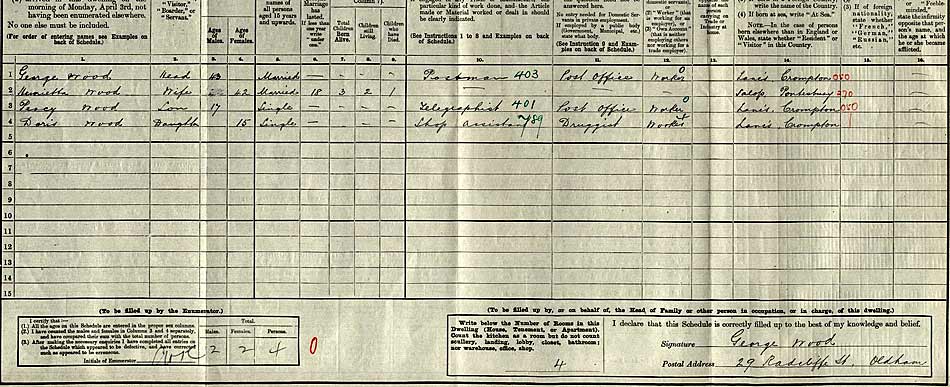 morning of Monday, April 3rd, not
having been enumerated elsewhere.
No one else must be included.
(For order of entering names see Examples on
back of Schedule.)
"Visitor,"
"Boarder," or
"Servant."
Ages
of
Males.
Ages
of
Females.
names of
all persons
aged 15 years
and upwards.
Marriage
has
lasted.
If less than
one year
write
"under
one."
Total
Children
Born
Alive.
Children
still
Living.
Children
who
have
particular kind of work done, and the Article
made or Material worked or dealt in should
be clearly indicated.
(See Instructions 1 to 8 and Examples on back of
Schedule.)
answered here.
No entry needed for Domestic Servants in private employment.
If employed by a public body
(Government, Municipal, etc.)
state what body.
(See Instruction 9 and Examples on back of Schedule.)
(2) "Worker" (that is working for an employer), or
(3) "Own Account" (that is neither
employing others nor working for a trade employer).
carrying on
Trade or
Industry
write the name of the County.
(4) If born at sea, write "At Sea."
NOTE.—In the case of persons
born elsewhere than in England or
Wales, state whether "Resident" or
"Visitor" in this Country.
(3) If of foreign
nationality,
state whether
"French,"
"German,"
"Russian,"
etc.
or "Feeble-minded,"
state the infirmity
opposite that person's name, and
the age at which
he or she became
afflicted.
1. 2. 3. 4. 5. 6. 7. 8. 9. 10. 11. 12. 13. 14. 15. 16.
1 George Wood Head 43 Married — — — — Postman 403 Post Office Worker 0 Lancs. Crompton 050 —
2 Henrietta Wood Wife 42 Married 18 3 2 1 — — — Salop, Pontesbury 270 —
3 Percy Wood Son 17 Single — Telegraphist 401 Post Office Worker 0 Lancs. Crompton 050 —
4 Doris Wood Daughter 15 Single — Shop Assistant 789 Druggist Worker Lancs. Crompton —
5
6
7
8
9
10
11
12
13
14
15
(To be filled up by the Enumerator.)
(To be filled up by, or on behalf of, the Head of Family or other person in occupation, or in charge, of this dwelling.)
I certify that:—
(1.) All the ages on this Schedule are entered in the proper sex columns.
(2.) I have counted the males and females in Columns 3 and 4 separately,
and have compared their sum with the total number of persons.
(3.) After making the necessary enquiries I have completed all entries on
the Schedule which appeared to be defective, and have corrected
such as appeared to be erroneous.
Initials of Enumerator
Total.
Males. Females. Persons.
2 2 4
0
Write below the Number of Rooms in this
Dwelling (House, Tenement, or Apartment).
Count the kitchen as a room but do not count
scullery, landing, lobby, closet, bathroom;
nor warehouse, office, shop.
4
I declare that this Schedule is correctly filled up to the best of my knowledge and belief.
Signature George Wood
Postal Address 29 Radcliffe St. Oldham